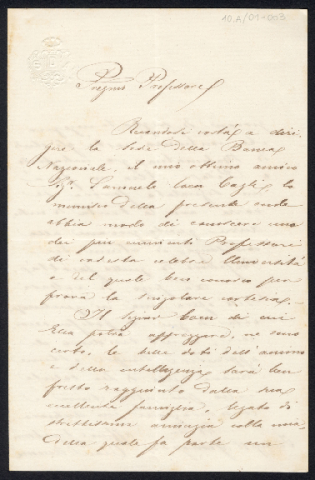 10.A/01-003
Pregmo Professore
Recandosi costà a diri-
gere la Sede della Banca
Nazionale, il mio ottimo amico
Sigr. Samuele Coen Cagli, lo
munisco della presente onde
abbia modo di conoscere uno
dei più eminenti Professori
di codesta celebre Università
e del quale ben conosco per
prova la singolare cortesia.
Il Signor Coen di cui
Ella potrà apprezzare, ne sono
certo, le belle doti dell'animo
e della intelligenza sarà ben
presto raggiunto dalla sua
eccellente famiglia, legata di
strettissima amicizia colla mia,
della quale fa parte un